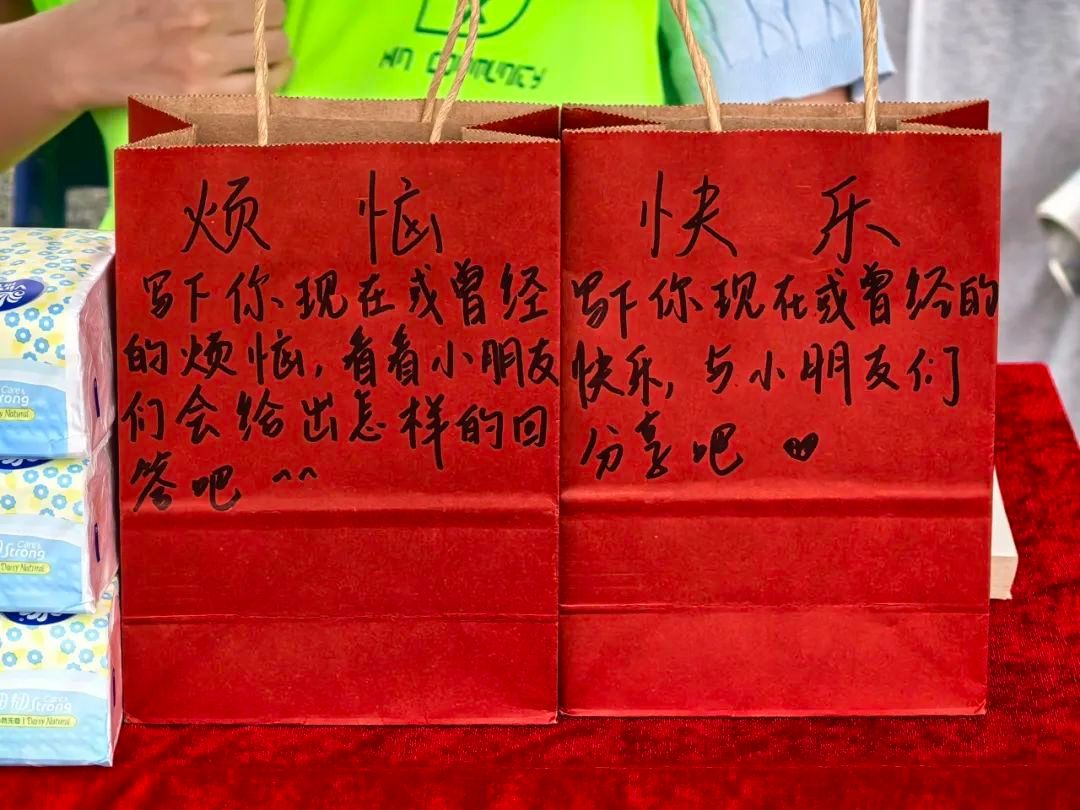 烦 恼
写下你现在或曾经
的烦恼,看看小朋友
们会给出怎样的回
答吧 ^^
快 乐
写下你现在或曾经的
快乐,与小朋友们
分享吧
Care&
Strong
Daisy Natural
Care&
Strong
Daisy Natural
Care&
Strong
Daisy Natural